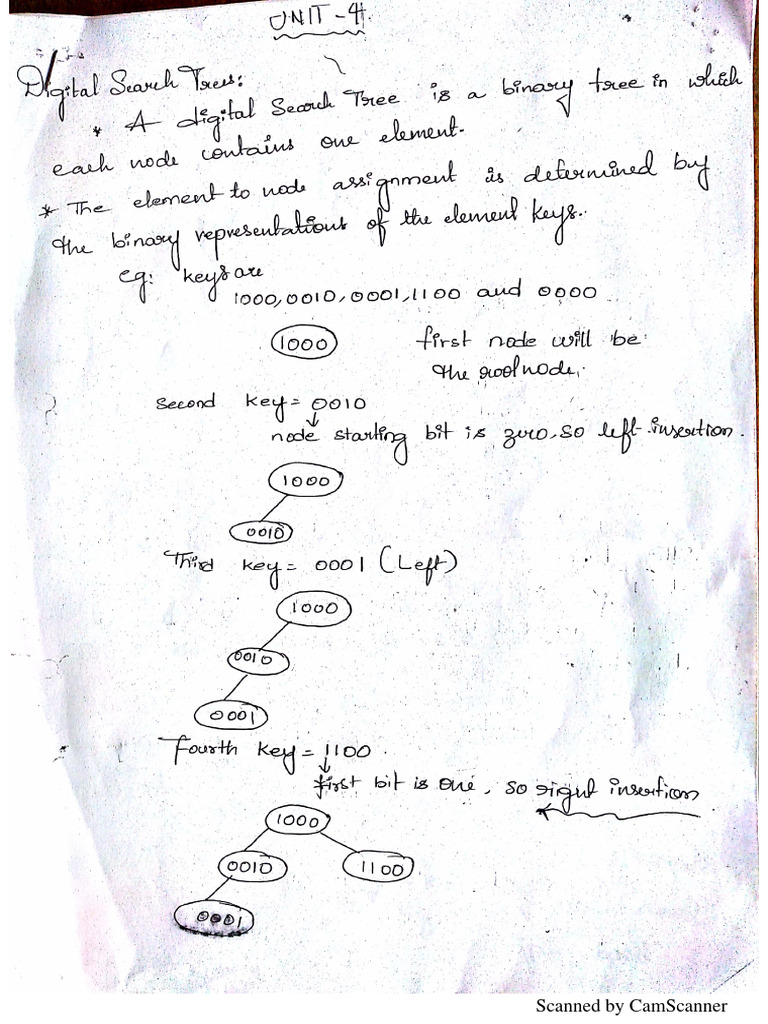 UNIT - 4.
Digital Search Trees:
* A digital Search Tree is a binary tree in which
each node contains one element.
* The element to node assignment is determined by
the binary representations of the element keys.
eg: keys are
1000,0010,0001,1100 and 0000
1000 first node will be
the root node.
Second key = 0010
node starting bit is zero, so left insertion.
1000
0010
Third key = 0001 (Left)
1000
0010
0001
Fourth key = 1100
first bit is one, so right insertion
1000
0010 1100
0001
Scanned by CamScanner